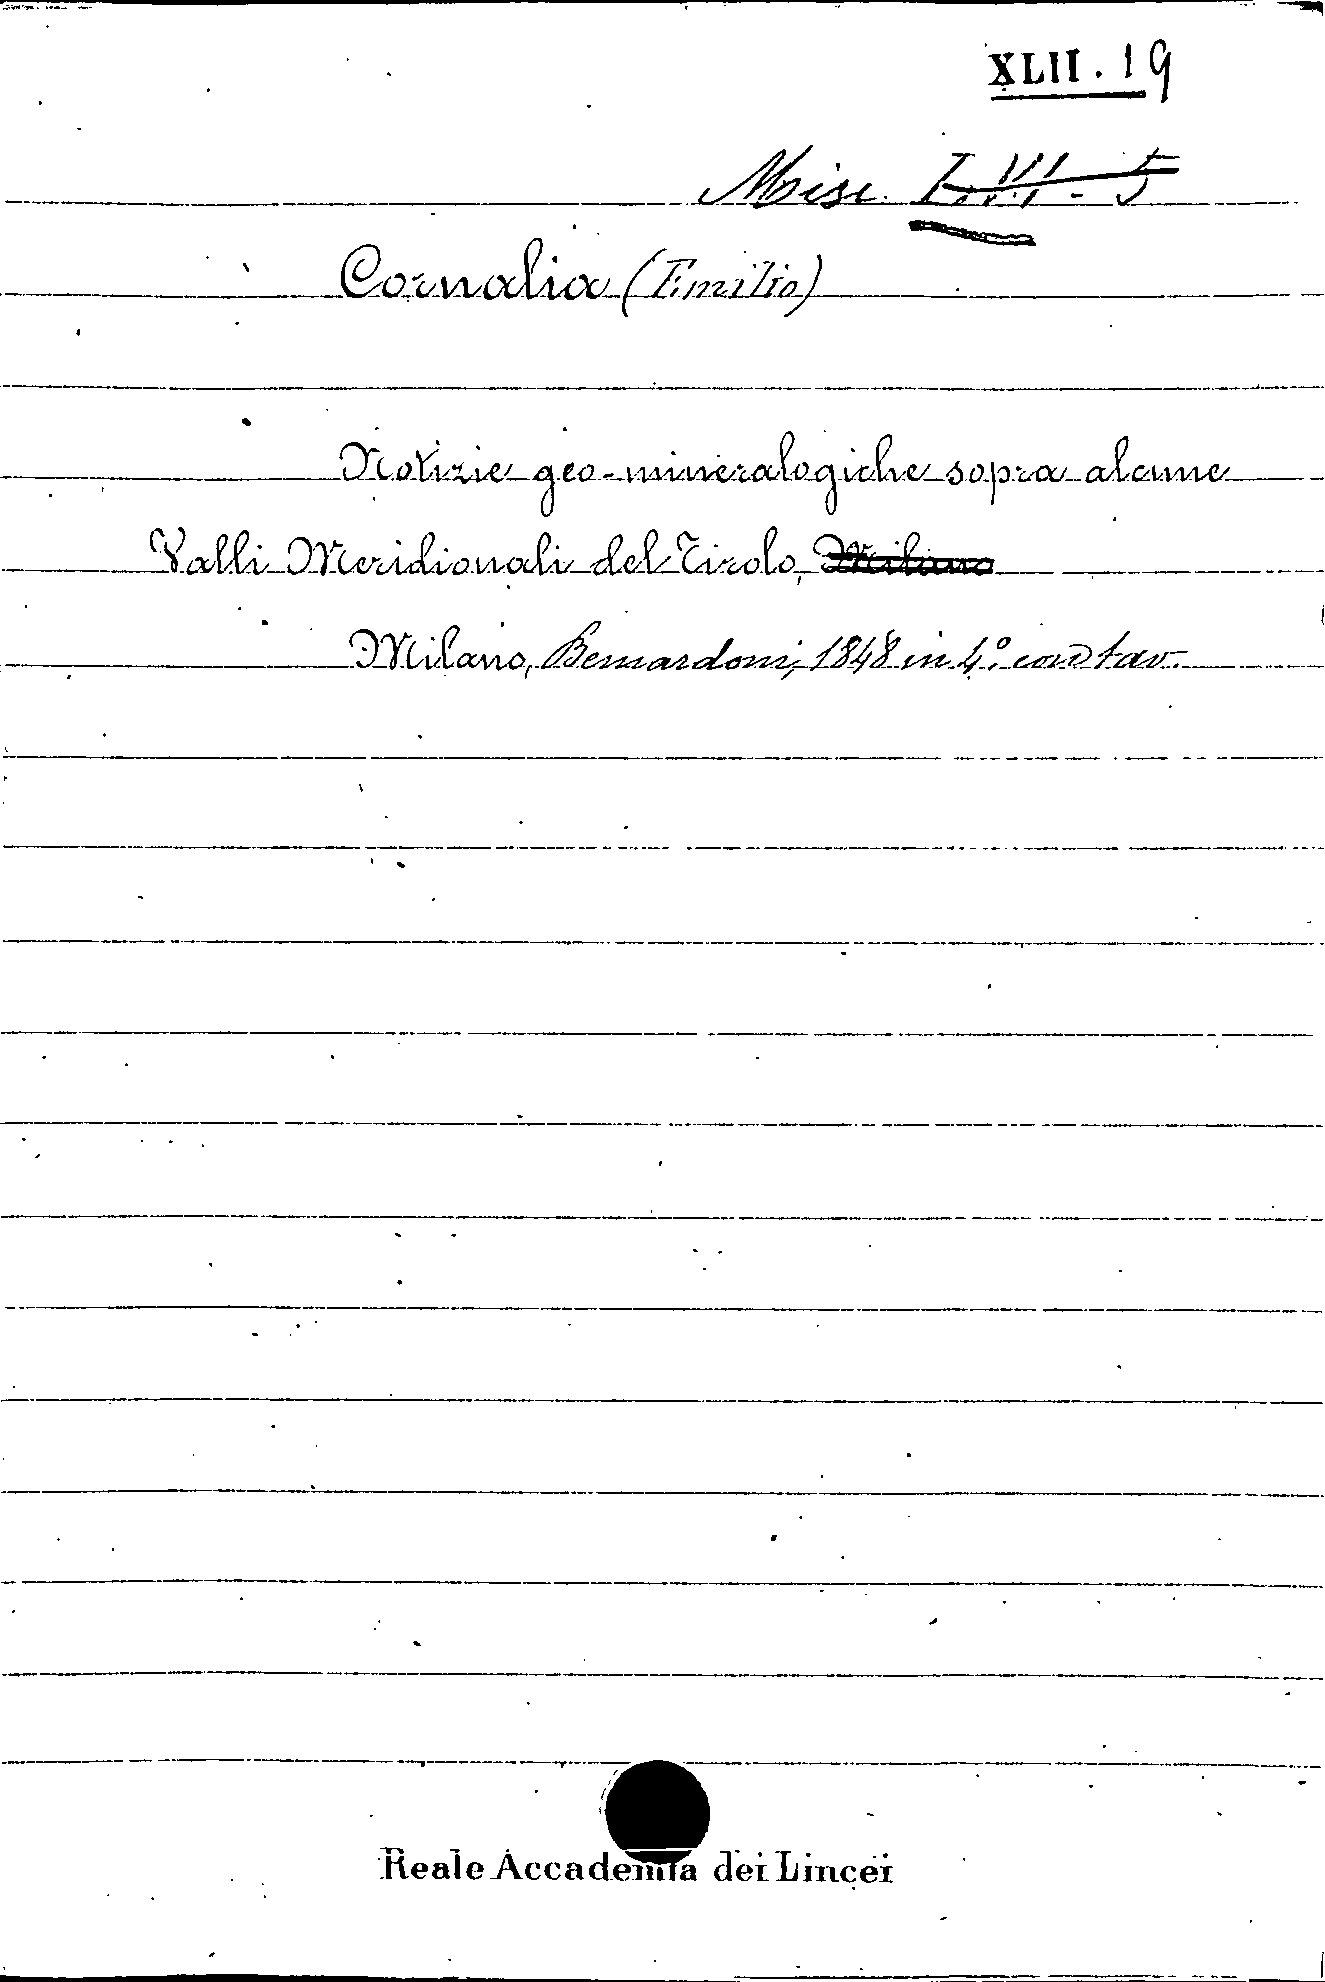 XLII. 19
Misc.
Cornalia (Emilio)
Notizie geo-mineralogiche sopra alcune
Valli Meridionali del Tirolo, Milano
Milano, Bernardoni, 1848 in 4.° con tav.
Reale Accademia dei Lincei